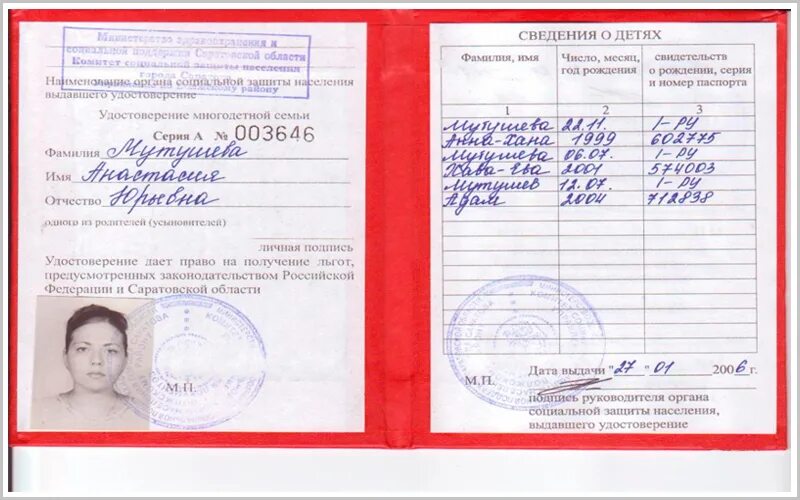 Министерство здравоохранения и
социальной поддержки Саратовской области
Комитет социальной защиты населения
города
району
Наименование органа социальной защиты населения
выдавшего удостоверение
Удостоверение многодетной семьи
Серия А № 003646
Фамилия Мутушева
Имя Анастасия
Отчество Юрьевна
одного из родителей (усыновителей)
личная подпись
Удостоверение дает право на получение льгот,
предусмотренных законодательством Российской
Федерации и Саратовской области
М.П.
СВЕДЕНИЯ О ДЕТЯХ
Фамилия, имя Число, месяц, год рождения свидетельств о рождении, серия и номер паспорта
1 2 3
Мутушева 22.11. I-РУ
Анна-Хана 1999 602775
Мутушева 06.07. I-РУ
Хава-Ева 2001 574003
Мутушев 12.07. I-РУ
Адам 2004 712838
Дата выдачи "27" 01 2006г.
М.П.
подпись руководителя органа
социальной защиты населения,
выдавшего удостоверение